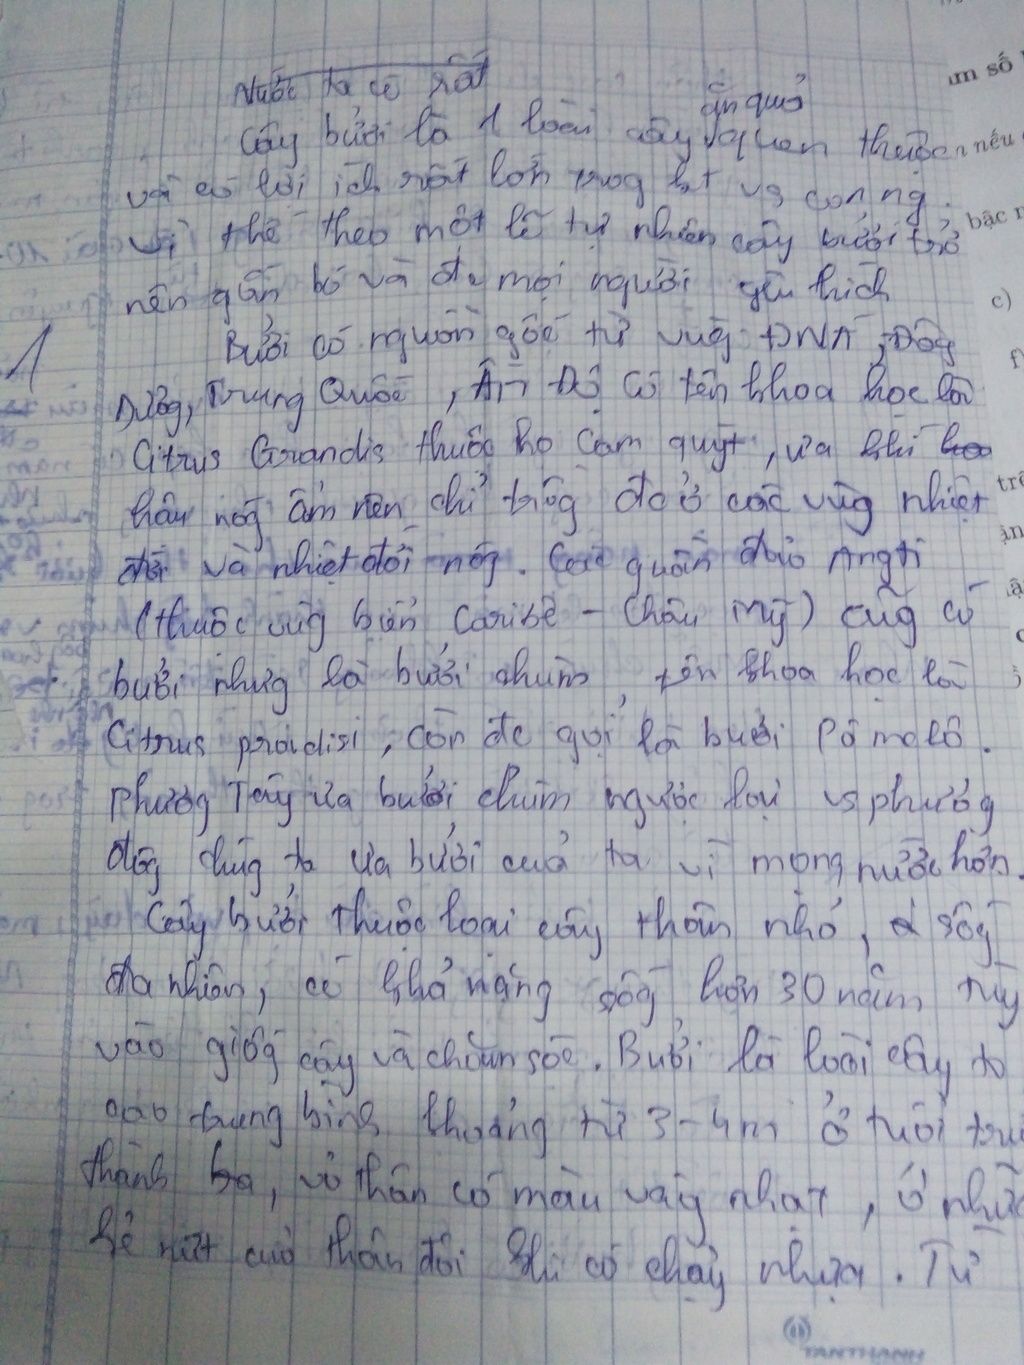 Nước ta có rất
ăn quả
Cây bưởi là 1 loài cây quen thuộc
và có lợi ích rất lớn trog vs con ng.
vì thế theo một lẽ tự nhiên cây bưởi trở
nên gắn bó và đc mọi người yêu thích
Bưởi có nguồn gốc từ vùg ĐNA, Đôg
Dươg, Trung Quốc, Ấn Độ có tên khoa học là
Citrus Grandis thuộc họ Cam quýt, ưa khí
hậu nóg ẩm nên chỉ trồg đc ở các vùg nhiệt
đới và nhiệt đới nóg. Các quần đảo Angti
(thuộc vùg biển Caribê - Châu Mỹ) cũg có
bưởi nhưg là bưởi chùm, tên khoa học là
Citrus pradisi, còn đc gọi là bưởi Pômelô.
Phươg Tây ưa bưởi chùm ngược lại vs phươg
đôg chúg ta ưa bưởi của ta vì mọng nước hơn.
Cây bưởi thuộc loại cây thân nhỏ, sốg
đa nhiên, có khả năng sốg hơn 30 năm tùy
vào giốg cây và chăm sóc. Bưởi là loài cây to
cao trung bình khoảng từ 3-4m ở tuổi trư
thành ba, vỏ thân có màu vàg nhạt, ở nhữ
kẽ nứt của thân đôi khi có chảy nhựa. Từ
1
ìm số
nếu
bậc
c)
f
trê
TANTHANH